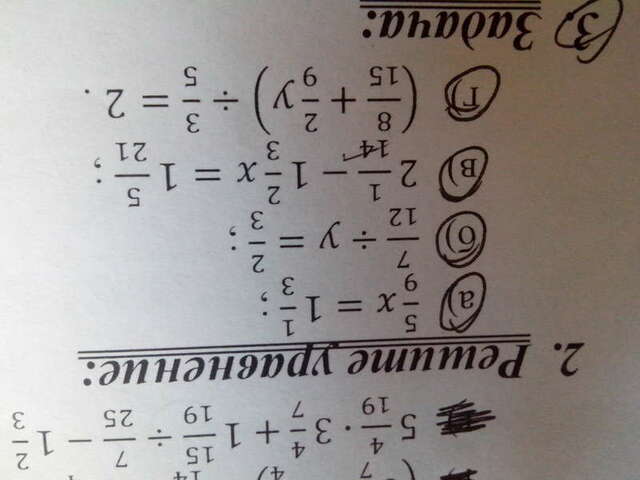 5 4/19 · 3 4/7 + 1 15/19 ÷ 7/25 − 1 2/3
2. Решите уравнение:
а) 5/9 x = 1 1/3 ;
б) 7/12 ÷ y = 2/3 ;
в) 2 1/14 − 1 2/3 x = 1 5/21 ;
г) (8/15 + 2/9 y) ÷ 3/5 = 2 .
3. Задача: